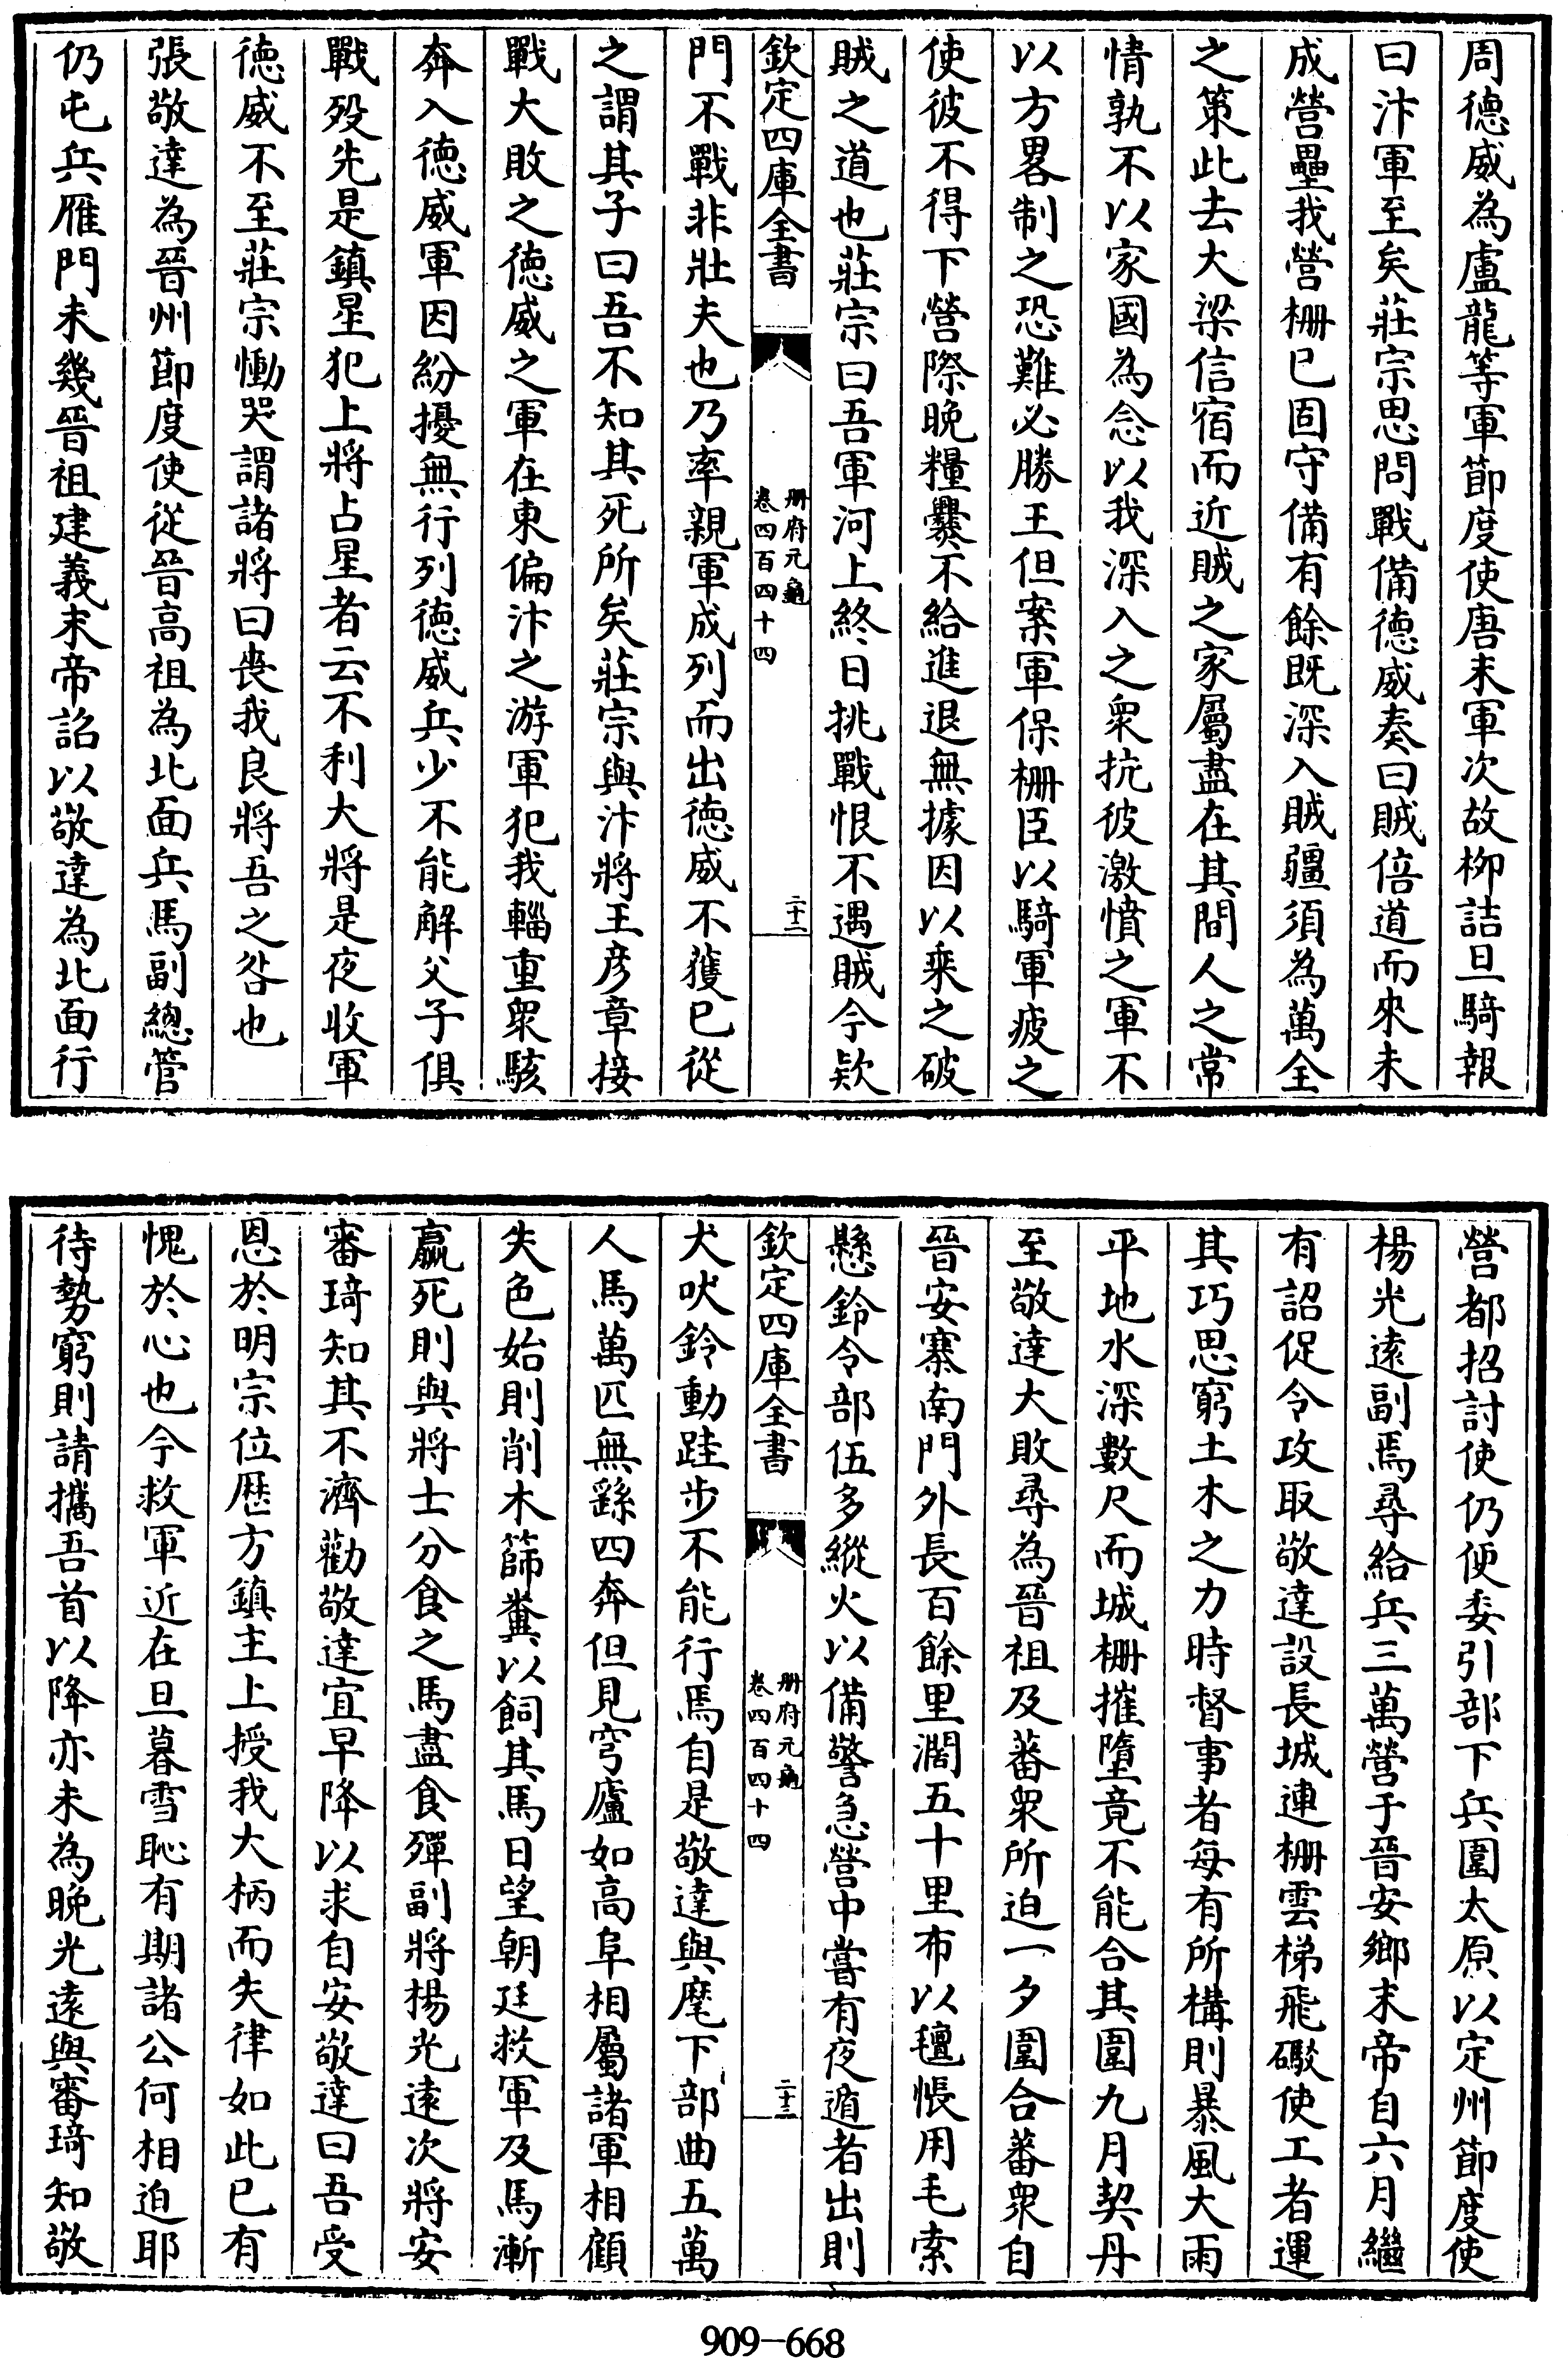 周德威為盧龍等軍節度使唐末軍次故栁詰旦騎報
曰汴軍至矣莊宗思問戰備徳威奏曰賊倍道而來未
成營壘我營栅已固守備有餘既深入賊疆須為萬全
之策此去大梁信宿而近賊之家屬盡在其間人之常
情孰不以家國為念以我深入之衆抗彼激憤之軍不
以方畧制之恐難必勝王但案軍保栅臣以騎軍疲之
使彼不得下營際晩糧爨不給進退無據因以乘之破
賊之道也莊宗曰吾軍河上終日挑戰恨不遇賊今欵
欽定四庫全書
册府元龜
卷四百四十四
二十二
門不戰非壯夫也乃率親軍成列而出徳威不獲已從
之謂其子曰吾不知其死所矣莊宗與汴將王彦章接
戰大敗之徳威之軍在東偏汴之游軍犯我輜重衆駭
奔入徳威軍因紛擾無行列徳威兵少不能解父子俱
戰歿先是鎮星犯上將占星者云不利大將是夜收軍
徳威不至莊宗慟哭謂諸將曰喪我良將吾之咎也
張敬達為晉州節度使從晉高祖為北面兵馬副總管
仍屯兵雁門未幾晉祖建義末帝詔以敬達為北面行
營都招討使仍便委引部下兵圍太原以定州節度使
楊光逺副焉尋給兵三萬營于晉安鄉末帝自六月繼
有詔促令攻取敬達設長城連栅雲梯飛礟使工者運
其巧思窮土木之力時督事者每有所構則暴風大雨
平地水深數尺而城栅摧墮竟不能合其圍九月契丹
至敬達大敗尋為晉祖及蕃衆所迫一夕圍合蕃衆自
晉安寨南門外長百餘里濶五十里布以氊帳用毛索
懸鈴令部伍多縱火以備警急營中嘗有夜遁者出則
欽定四庫全書
册府元龜
卷四百四十四
二十三
犬吠鈴動跬步不能行焉自是敬達與麾下部曲五萬
人馬萬匹無繇四奔但見穹廬如髙阜相屬諸軍相顧
失色始則削木篩糞以飼其馬日望朝廷救軍及馬漸
羸死則與將士分食之馬盡食殫副將楊光逺次將安
審琦知其不濟勸敬達宜早降以求自安敬達曰吾受
恩於明宗位歴方鎮主上授我大柄而失律如此已有
愧於心也今救軍近在旦暮雪恥有期諸公何相迫耶
待勢窮則請攜吾首以降亦未為晩光逺與審琦知敬
909-668